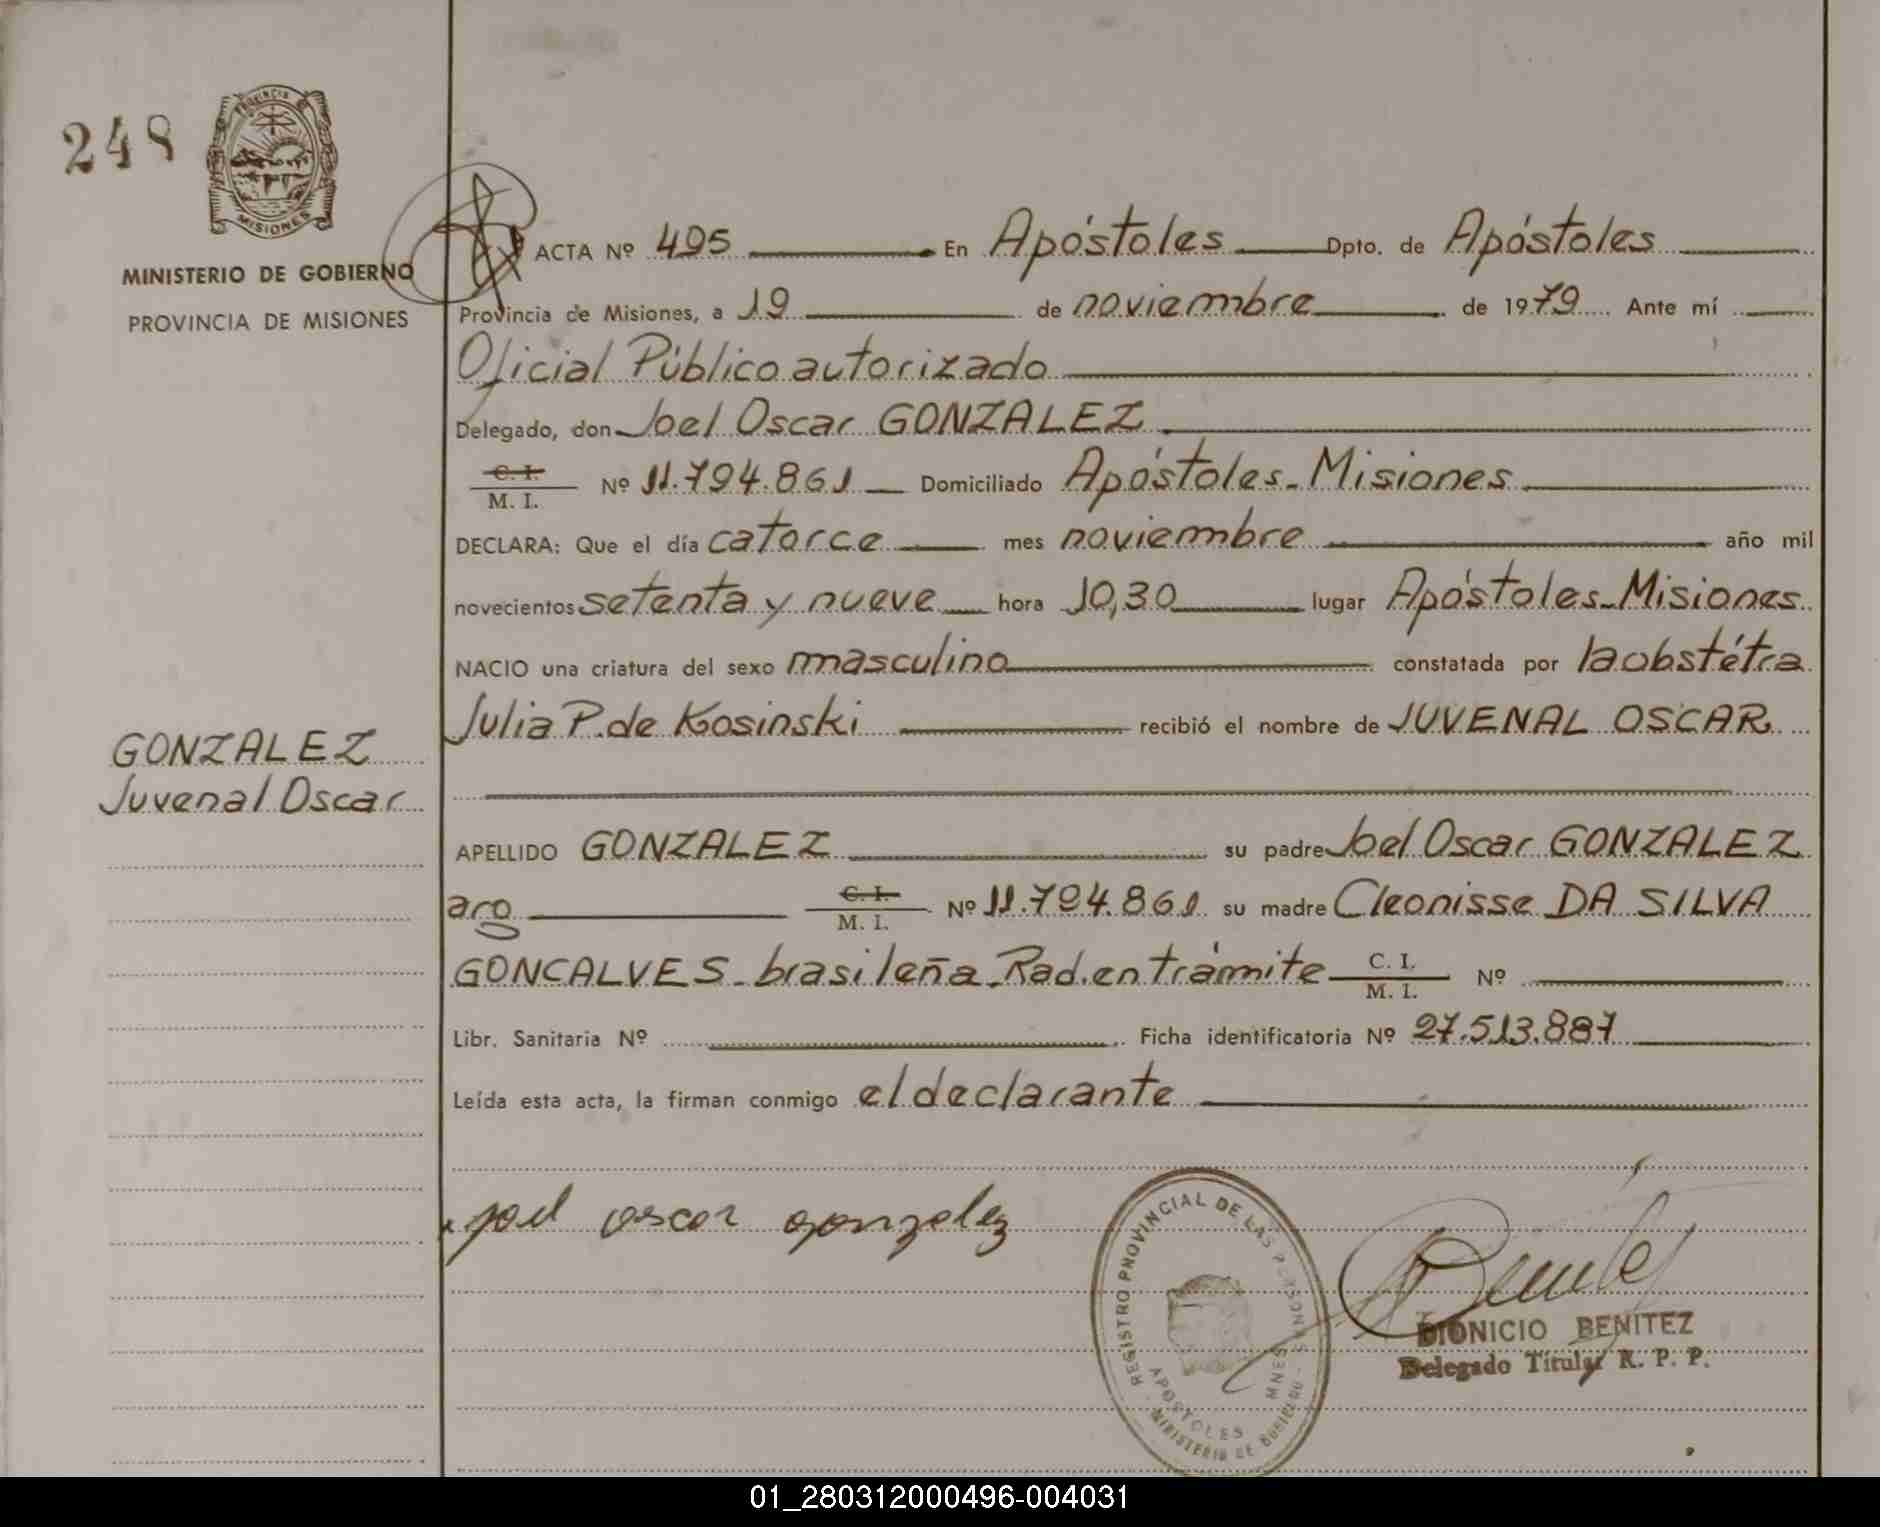 248
PROVINCIA DE
MISIONES
MINISTERIO DE GOBIERNO
PROVINCIA DE MISIONES
ACTA Nº 495 En Apóstoles Dpto. de Apóstoles
Provincia de Misiones, a 19 de noviembre de 1979 Ante mí
Oficial Público autorizado
Delegado, don Joel Oscar GONZALEZ
C. I.
M. I. Nº 11.794.861 Domiciliado Apóstoles-Misiones
DECLARA: Que el día catorce mes noviembre año mil
novecientos setenta y nueve hora 10,30 lugar Apóstoles-Misiones
NACIO una criatura del sexo masculino constatada por la obstétra
Julia P. de Kosinski recibió el nombre de JUVENAL OSCAR
GONZALEZ
Juvenal Oscar
APELLIDO GONZALEZ su padre Joel Oscar GONZALEZ
arg C. I.
M. I. Nº 11.794.861 su madre Cleonisse DA SILVA
GONCALVES-brasileña-Rad. en trámite C. I.
M. I. Nº
Libr. Sanitaria Nº Ficha identificatoria Nº 27.513.887
Leída esta acta, la firman conmigo el declarante
joel oscar gonzalez
REGISTRO PROVINCIAL DE LAS PERSONAS
APOSTOLES MNES
MINISTERIO DE GOBIERNO
Benítez
DIONICIO BENITEZ
Delegado Titular R. P. P.
01_280312000496-004031